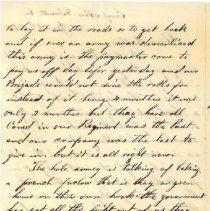 to lay it in the roads so to get back
and if ever an army was demoralised
this army is. the paymaster came to
pay us off day before yesterday and our
Brigade would not sine the rolls for
instead of it being 4 months it was
only 2 months. but they have all
signed in our Regiment was the last
and our company was the last to
give in. but it is all right now.
The hole army is talking of taking
a french furlow that is they are going
home on their own hook. the goverment
has got all the fight out of us they